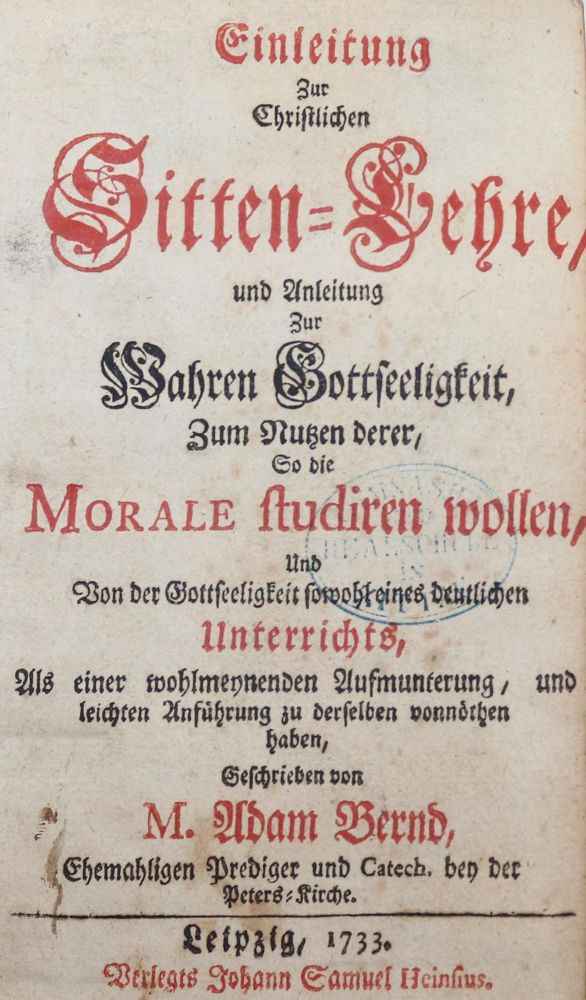 Einleitung
Zur
Christlichen
Sitten-Lehre,
und Anleitung
Zur
Wahren Gottseeligkeit,
Zum Nutzen derer,
So die
MORALE studiren wollen,
Und
Von der Gottseeligkeit sowohl eines deutlichen
Unterrichts,
Als einer wohlmeynenden Aufmunterung, und
leichten Anführung zu derselben vonnöthen
haben,
Geschrieben von
M. Adam Bernd,
Ehemahligen Prediger und Catech. bey der
Peters-Kirche.
Leipzig, 1733.
Verlegts Johann Samuel Heinsius.
REALSCHULE
IN